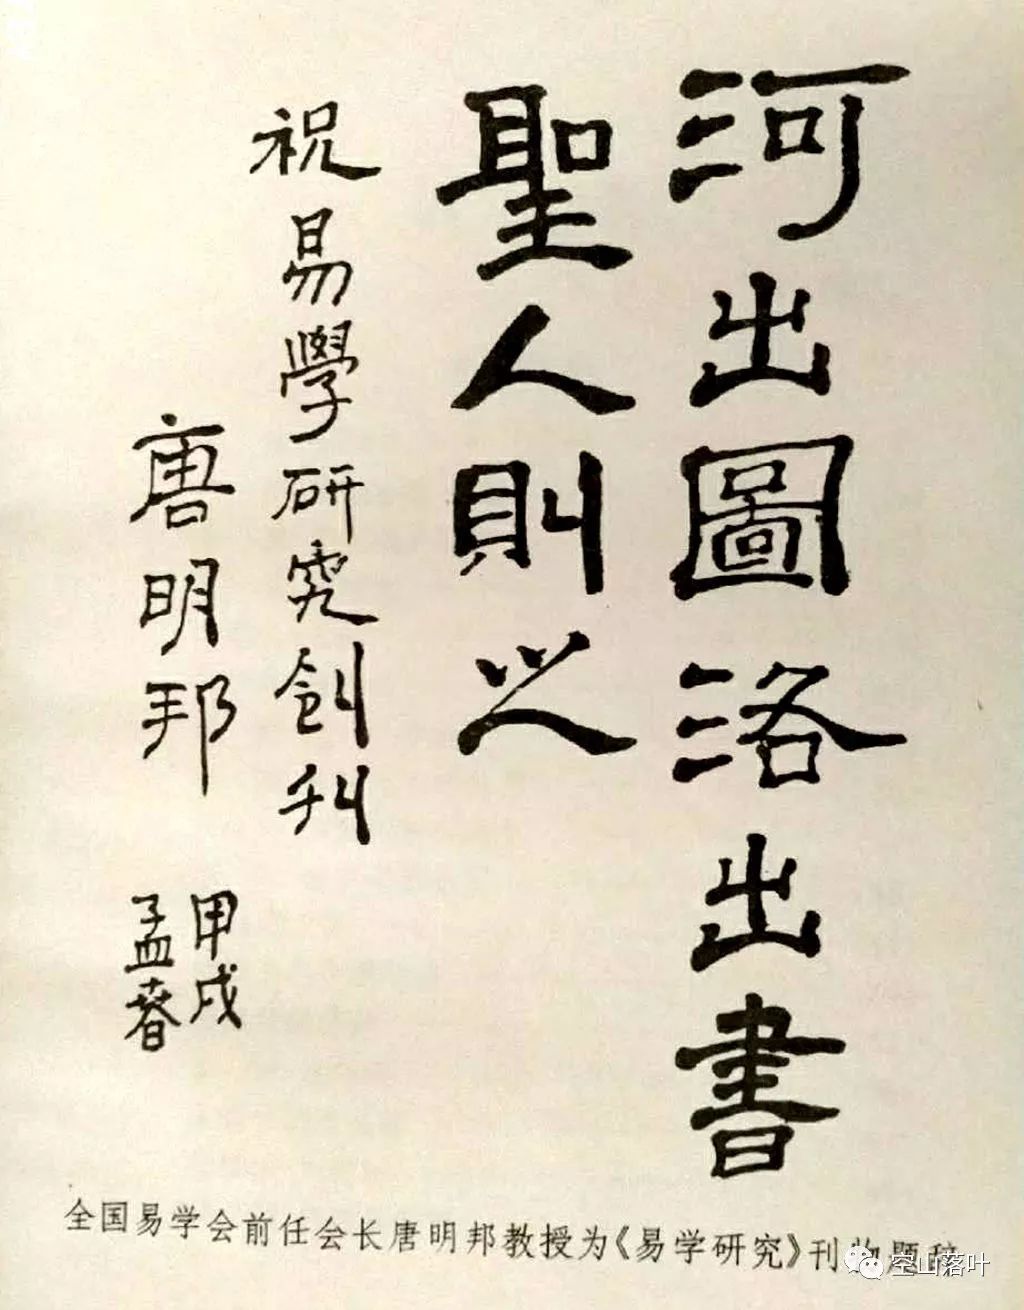 河出圖洛出書
聖人則之
祝易學研究創刊
唐明邦
甲戌
孟春
全国易学会前任会长唐明邦教授为《易学研究》刊物题辞
空山落叶